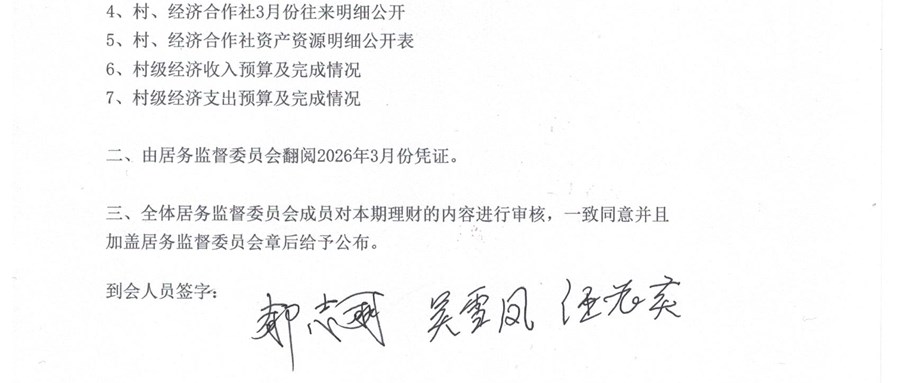 4、村、经济合作社3月份往来明细公开
5、村、经济合作社资产资源明细公开表
6、村级经济收入预算及完成情况
7、村级经济支出预算及完成情况
二、由居务监督委员会翻阅2026年3月份凭证。
三、全体居务监督委员会成员对本期理财的内容进行审核，一致同意并且
加盖居务监督委员会章后给予公布。
到会人员签字： 吴雪凤